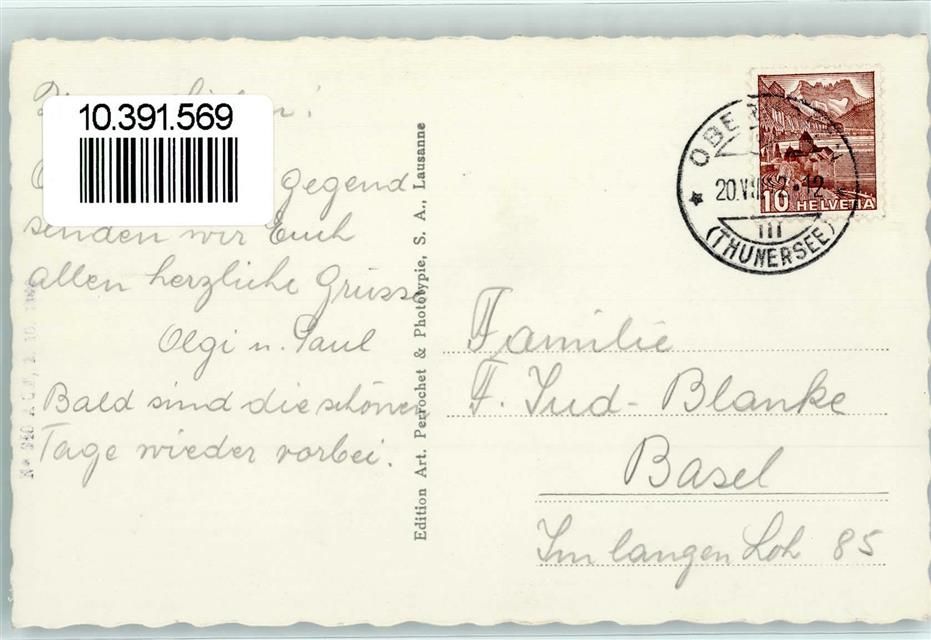 10.391.569
Gegend
senden wir Euch
allen herzliche Grüsse
Olgi u. Paul
Bald sind die schönen
Tage wieder vorbei.
Edition Art. Perrochet & Phototypie, S. A., Lausanne
10 HELVETIA
(THUNERSEE)
Familie
F. Jud - Blanke
Basel
Im langen Loh 85